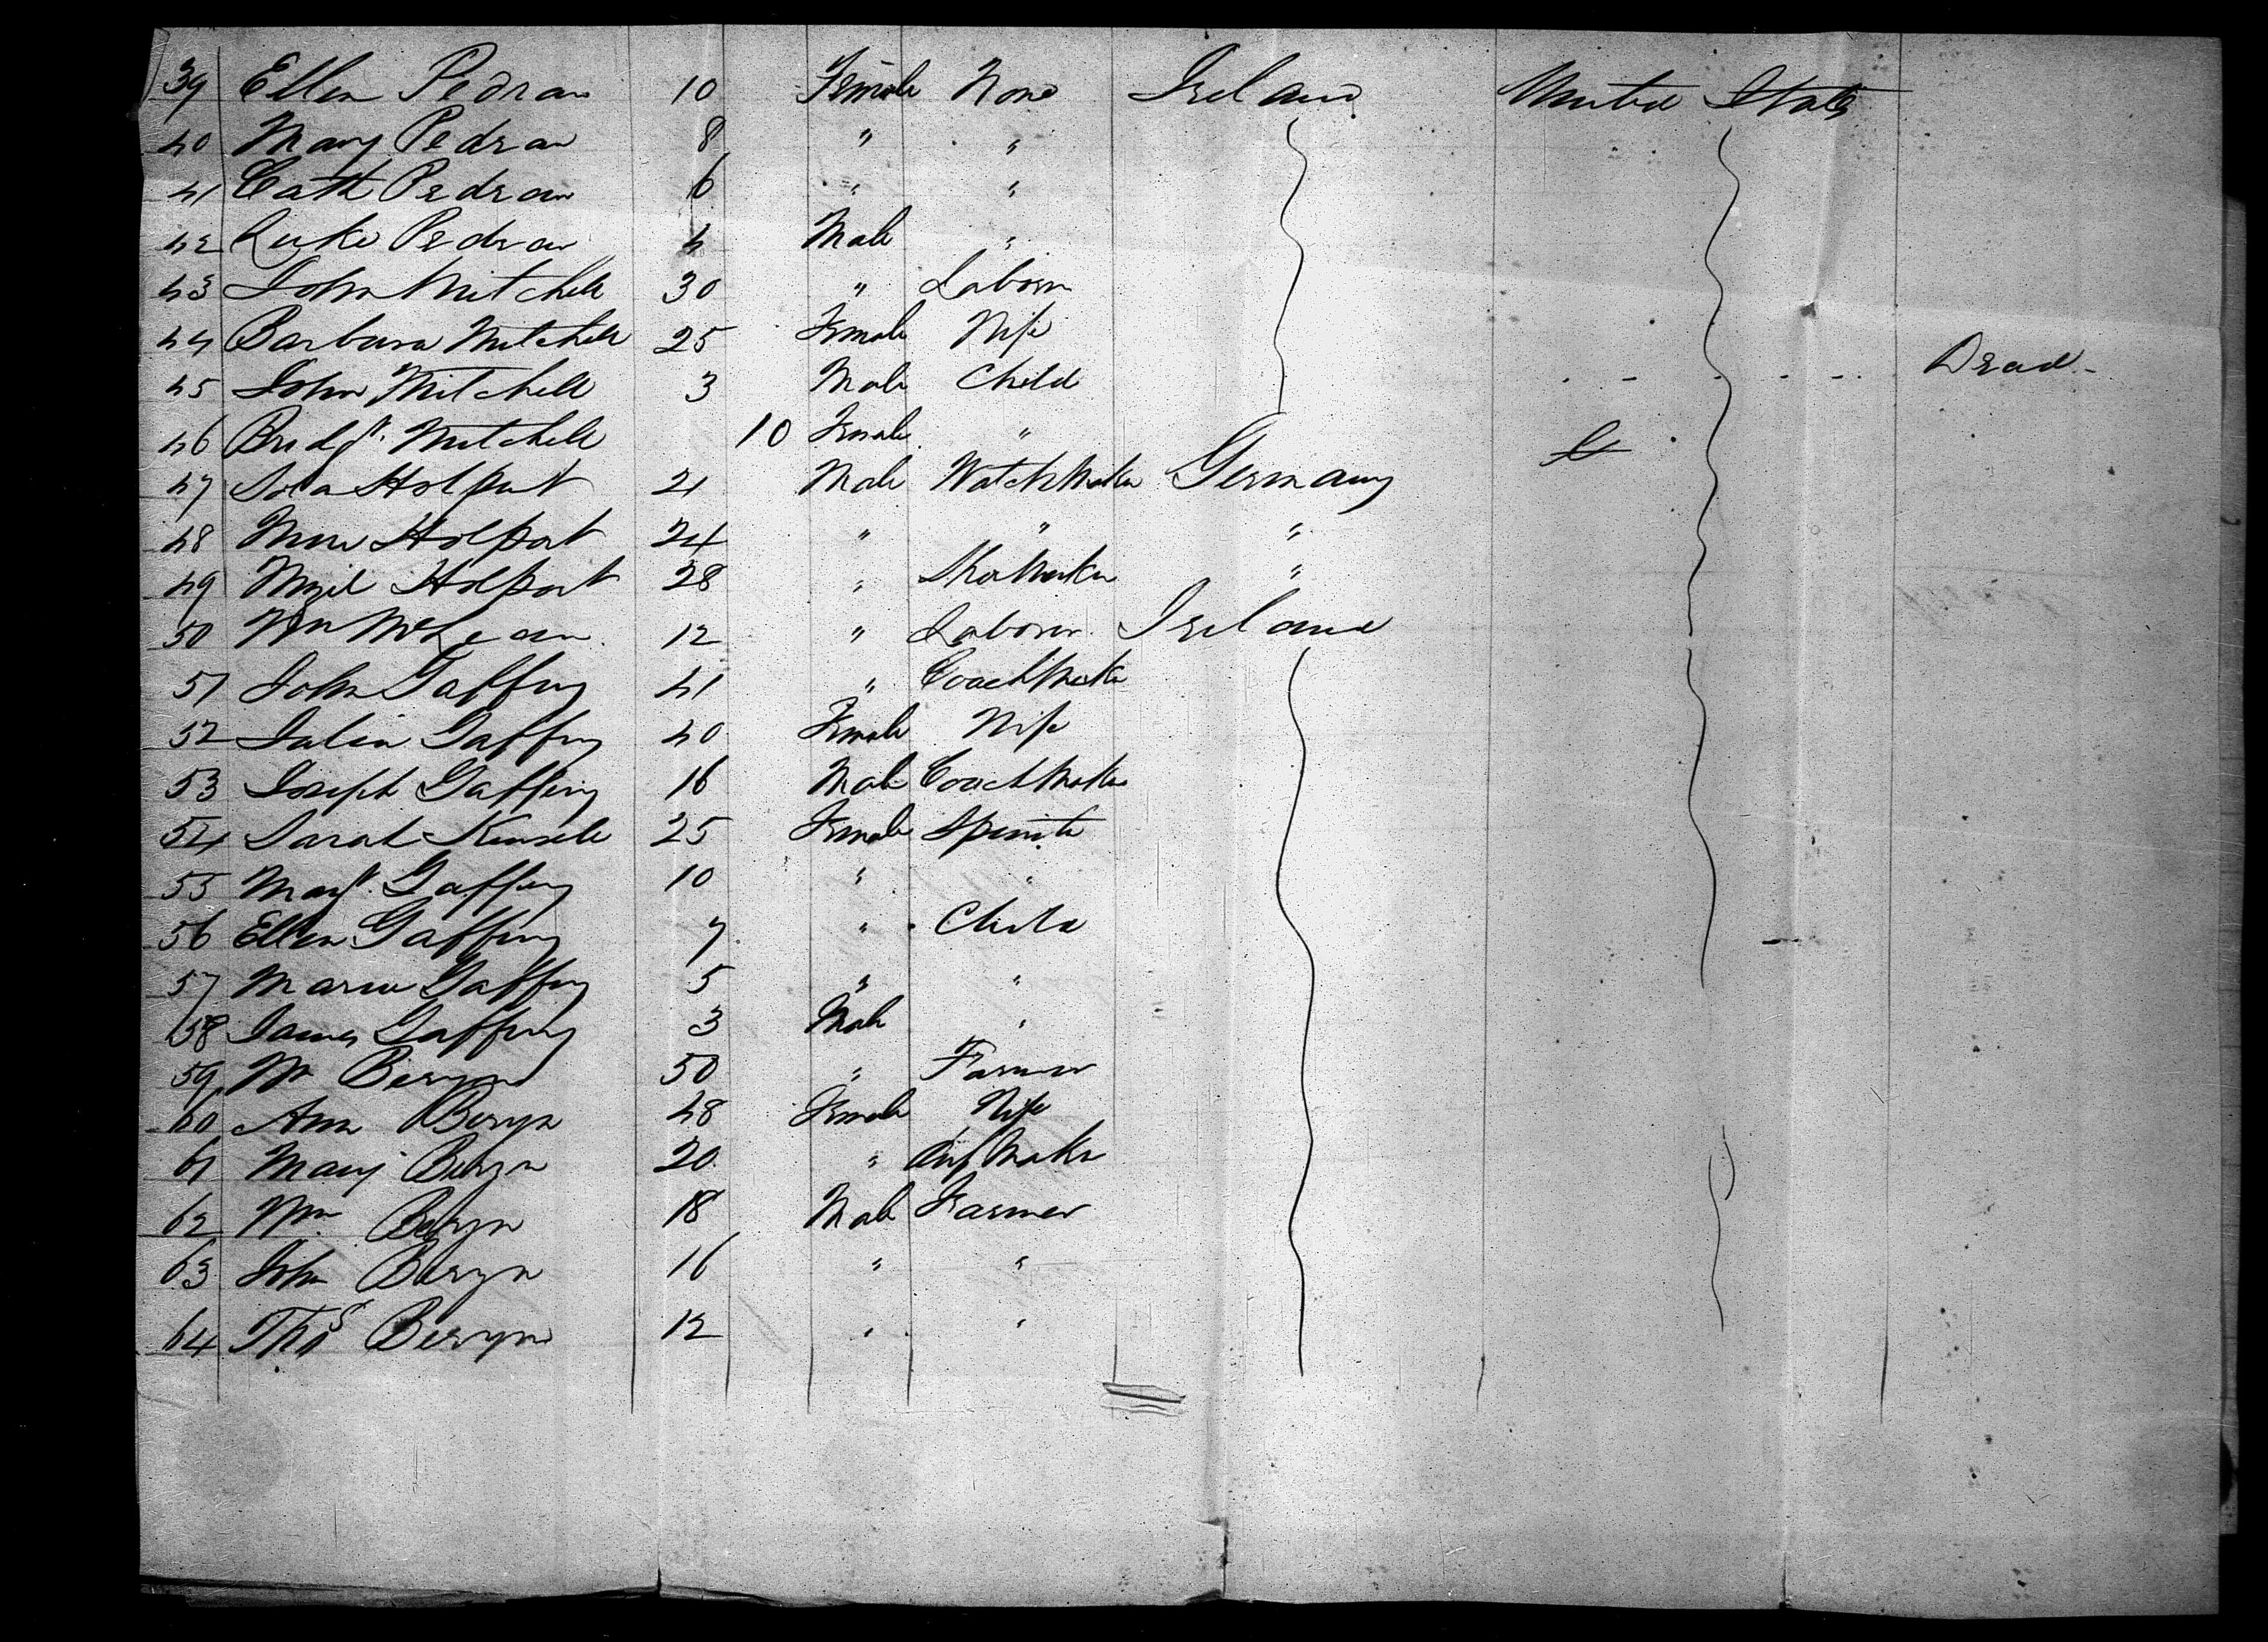 39 Ellen Pedran 10 Female None Ireland United States
40 Mary Pedran 8 " "
41 Cath Pedran 6 " "
42 Luke Pedran 4 Male "
43 John Mitchell 30 " Laborer
44 Barbara Mitchell 25 Female Wife
45 John Mitchell 3 Male Child Dead
46 Bridgt. Mitchell 10 Female "
47 Holpart 21 Male Watch Maker Germany
48 Holpart 24 " " "
49 Holpart 28 " Shoemaker "
50 Wm McLean 12 " Laborer Ireland
51 John Gaffney 41 " Coach Maker
52 Julia Gaffney 40 Female Wife
53 Joseph Gaffney 16 Male Coach Maker
54 Sarah Kinsele 25 Female Spinster
55 Margt. Gaffney 10 " "
56 Ellen Gaffney 7 " Child
57 Maria Gaffney 5 " "
58 James Gaffney 3 Male "
59 Wm Beryn 50 " Farmer
60 Ann Beryn 48 Female Wife
61 Mary Beryn 20 " Maker
62 Wm Beryn 18 Male Farmer
63 John Beryn 16 " "
64 Thos Beryn 12 " "